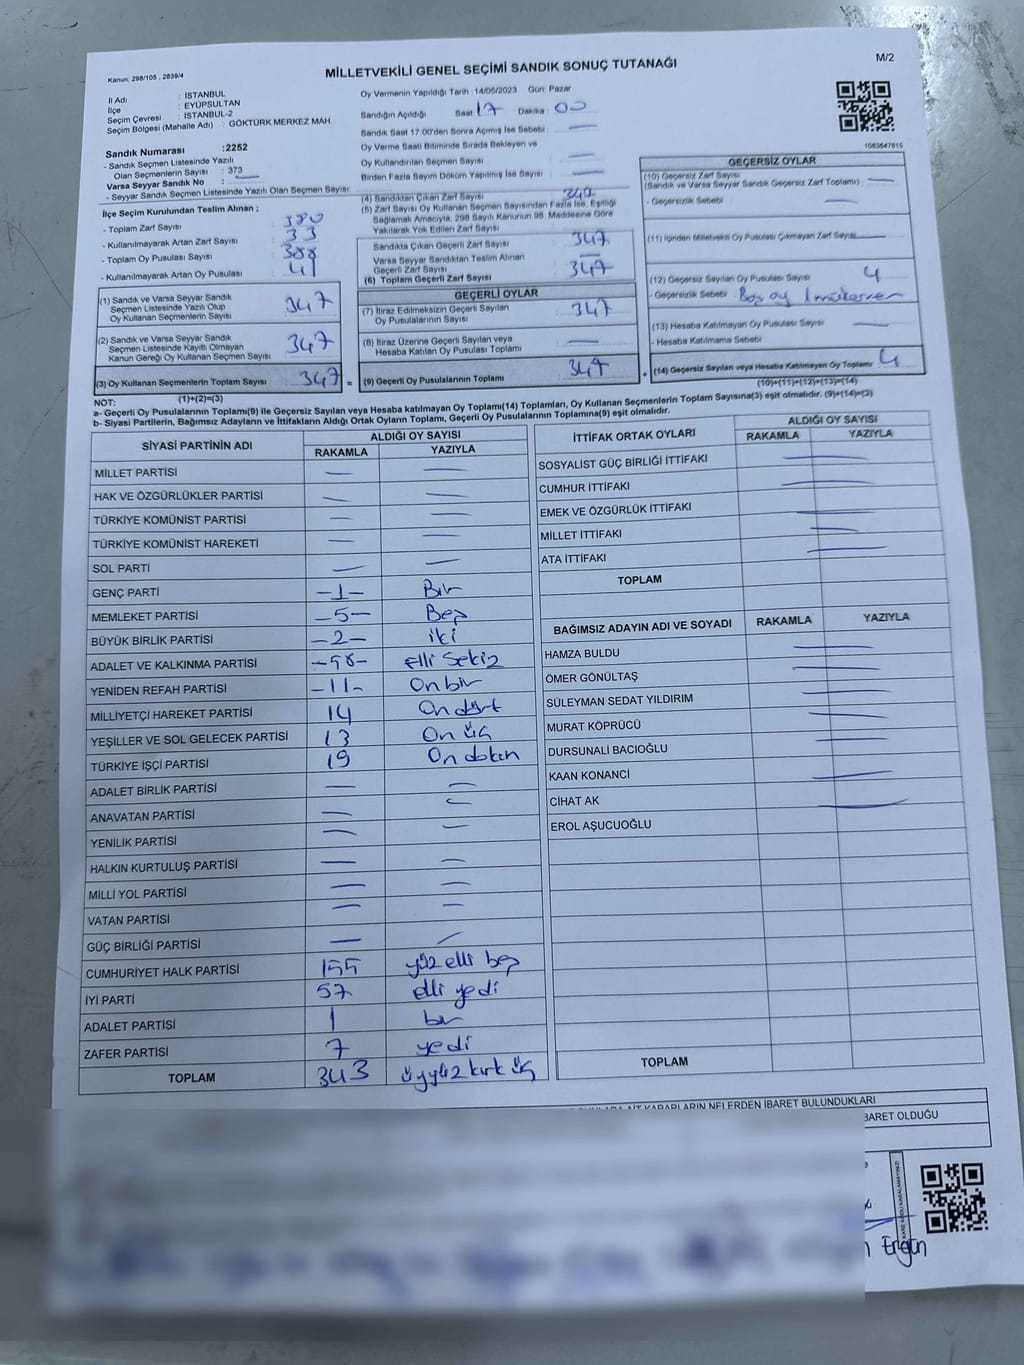 Kanun; 298/105 , 2839/4
MİLLETVEKİLİ GENEL SEÇİMİ SANDIK SONUÇ TUTANAĞI
M/2
İl Adı : İSTANBUL
İlçe : EYÜPSULTAN
Seçim Çevresi : İSTANBUL-2
Seçim Bölgesi (Mahalle Adı) : GÖKTÜRK MERKEZ MAH.
Sandık Numarası :2252
- Sandık Seçmen Listesinde Yazılı
Olan Seçmenlerin Sayısı : 373
Varsa Seyyar Sandık No : —
- Seyyar Sandık Seçmen Listesinde Yazılı Olan Seçmen Sayısı:
İlçe Seçim Kurulundan Teslim Alınan ;
- Toplam Zarf Sayısı 380
- Kullanılmayarak Artan Zarf Sayısı 33
- Toplam Oy Pusulası Sayısı 388
- Kullanılmayarak Artan Oy Pusulası 41
(1) Sandık ve Varsa Seyyar Sandık
Seçmen Listesinde Yazılı Olup
Oy Kullanan Seçmenlerin Sayısı 347
(2) Sandık ve Varsa Seyyar Sandık
Seçmen Listesinde Kayıtlı Olmayan
Kanun Gereği Oy Kullanan Seçmen Sayısı 347
(3) Oy Kullanan Seçmenlerin Toplam Sayısı 347 =
(1)+(2)=(3)
Oy Vermenin Yapıldığı Tarih :14/05/2023 Gün: Pazar
Sandığın Açıldığı Saat 17 Dakika : 00
Sandık Saat 17.00'den Sonra Açılmış İse Sebebi : —
Oy Verme Saati Bitiminde Sırada Bekleyen ve
Oy Kullandırılan Seçmen Sayısı —
Birden Fazla Sayım Döküm Yapılmış İse Sayısı —
(4) Sandıktan Çıkan Zarf Sayısı 347
(5) Zarf Sayısı Oy Kullanan Seçmen Sayısından Fazla İse, Eşitliği
Sağlamak Amacıyla, 298 Sayılı Kanunun 98. Maddesine Göre
Yakılarak Yok Edilen Zarf Sayısı
Sandıkta Çıkan Geçerli Zarf Sayısı 347
Varsa Seyyar Sandıktan Teslim Alınan
Geçerli Zarf Sayısı —
(6) Toplam Geçerli Zarf Sayısı 347
GEÇERLİ OYLAR
(7) İtiraz Edilmeksizin Geçerli Sayılan
Oy Pusulalarının Sayısı 347
(8) İtiraz Üzerine Geçerli Sayılan veya
Hesaba Katılan Oy Pusulası Toplamı —
(9) Geçerli Oy Pusulalarının Toplamı 347 +
1083647615
GEÇERSİZ OYLAR
(10) Geçersiz Zarf Sayısı
(Sandık ve Varsa Seyyar Sandık Geçersiz Zarf Toplamı) : —
- Geçersizlik Sebebi : —
(11) İçinden Milletvekili Oy Pusulası Çıkmayan Zarf Sayısı —
(12) Geçersiz Sayılan Oy Pusulası Sayısı 4
- Geçersizlik Sebebi Boş oy
(13) Hesaba Katılmayan Oy Pusulası Sayısı —
- Hesaba Katılmama Sebebi
(14) Geçersiz Sayılan veya Hesaba Katılmayan Oy Toplamı 4
(10)+(11)+(12)+(13)=(14)
NOT:
a- Geçerli Oy Pusulalarının Toplamı(9) ile Geçersiz Sayılan veya Hesaba katılmayan Oy Toplamı(14) Toplamları, Oy Kullanan Seçmenlerin Toplam Sayısına(3) eşit olmalıdır. (9)+(14)=(3)
b- Siyasi Partilerin, Bağımsız Adayların ve İttifakların Aldığı Ortak Oyların Toplamı, Geçerli Oy Pusulalarının Toplamına(9) eşit olmalıdır.
SİYASİ PARTİNİN ADI
ALDIĞI OY SAYISI
RAKAMLA YAZIYLA
MİLLET PARTİSİ — —
HAK VE ÖZGÜRLÜKLER PARTİSİ — —
TÜRKİYE KOMÜNİST PARTİSİ — —
TÜRKİYE KOMÜNİST HAREKETİ — —
SOL PARTİ — —
GENÇ PARTİ —1— Bir
MEMLEKET PARTİSİ —5— Beş
BÜYÜK BİRLİK PARTİSİ —2— iki
ADALET VE KALKINMA PARTİSİ —58— elli sekiz
YENİDEN REFAH PARTİSİ —11— On bir
MİLLİYETÇİ HAREKET PARTİSİ 14 On dört
YEŞİLLER VE SOL GELECEK PARTİSİ 13 On üç
TÜRKİYE İŞÇİ PARTİSİ 19 On dokuz
ADALET BİRLİK PARTİSİ — —
ANAVATAN PARTİSİ — —
YENİLİK PARTİSİ — —
HALKIN KURTULUŞ PARTİSİ — —
MİLLİ YOL PARTİSİ — —
VATAN PARTİSİ — —
GÜÇ BİRLİĞİ PARTİSİ — —
CUMHURİYET HALK PARTİSİ 155 yüz elli beş
İYİ PARTİ 57 elli yedi
ADALET PARTİSİ 1 bir
ZAFER PARTİSİ 7 yedi
TOPLAM 343 üçyüz kırk üç
İTTİFAK ORTAK OYLARI
ALDIĞI OY SAYISI
RAKAMLA YAZIYLA
SOSYALİST GÜÇ BİRLİĞİ İTTİFAKI —
CUMHUR İTTİFAKI —
EMEK VE ÖZGÜRLÜK İTTİFAKI —
MİLLET İTTİFAKI —
ATA İTTİFAKI —
TOPLAM
BAĞIMSIZ ADAYIN ADI VE SOYADI RAKAMLA YAZIYLA
HAMZA BULDU —
ÖMER GÖNÜLTAŞ —
SÜLEYMAN SEDAT YILDIRIM —
MURAT KÖPRÜCÜ —
DURSUNALİ BACIOĞLU —
KAAN KONANCİ —
CİHAT AK —
EROL AŞUCUOĞLU
TOPLAM
KARARLARIN NELERDEN İBARET BULUNDUKLARI
BARET OLDUĞU
Ergün